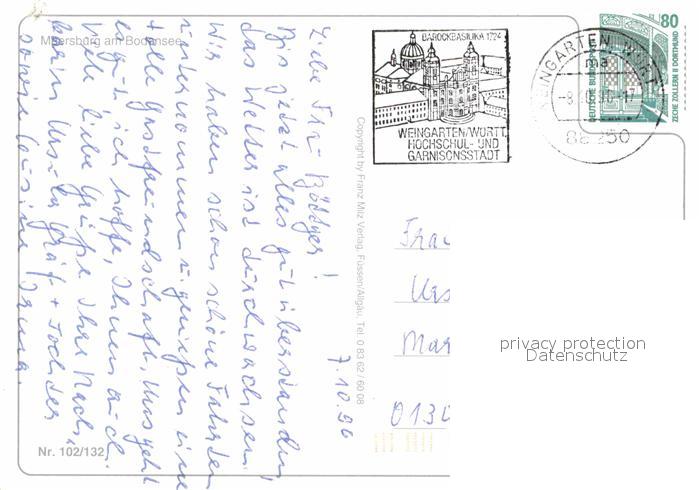 Meersburg am Bodensee
7.10.96
Liebe Frau Böttger!
Bis jetzt alles gut überstanden,
das Wetter ist durchwachsen.
Wir haben schon schöne Fahrten
unternommen u. genießen eine
tolle Gastfreundschaft. Uns geht
es gut, ich hoffe, Ihnen auch.
Viele liebe Grüße Ihre Nach-
barin Ursula Gräf + Tochter
sowie Cousine
Nr. 102/132
Copyright by Franz Milz Verlag, Füssen/Allgäu, Tel. 0 83 62 / 60 08
BAROCKBASILIKA 1724
WEINGARTEN/WÜRTT.
HOCHSCHUL- UND
GARNISONSSTADT
WEINGARTEN, WÜRTT
ma
88250
80
DEUTSCHE BUNDESPOST
ZECHE ZOLLERN II DORTMUND
Frau
Urs
Mar
0130
privacy protection
Datenschutz